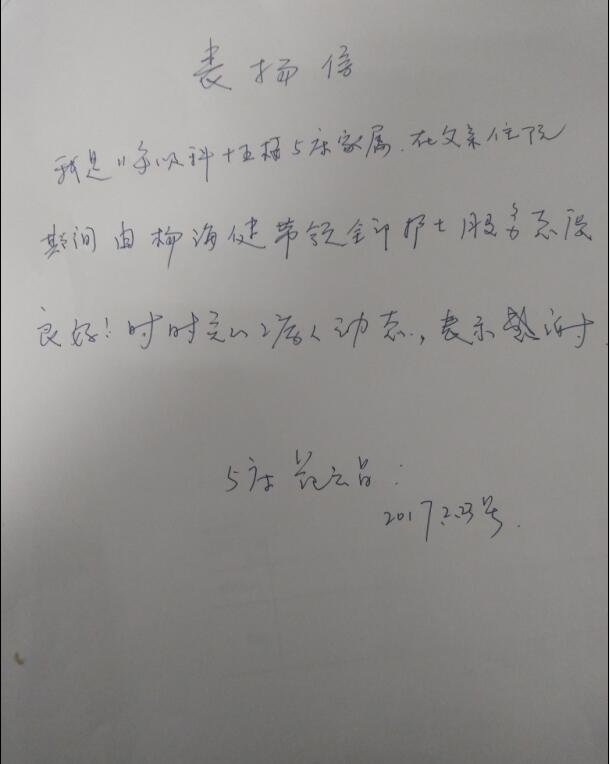 表扬信
我是 科十五楼5床家属.在父亲住院
期间由柳海健带领全部护士服务态度
良好!时时关心病人动态,表示感谢
5床 范云昌:
2017.2.23号.